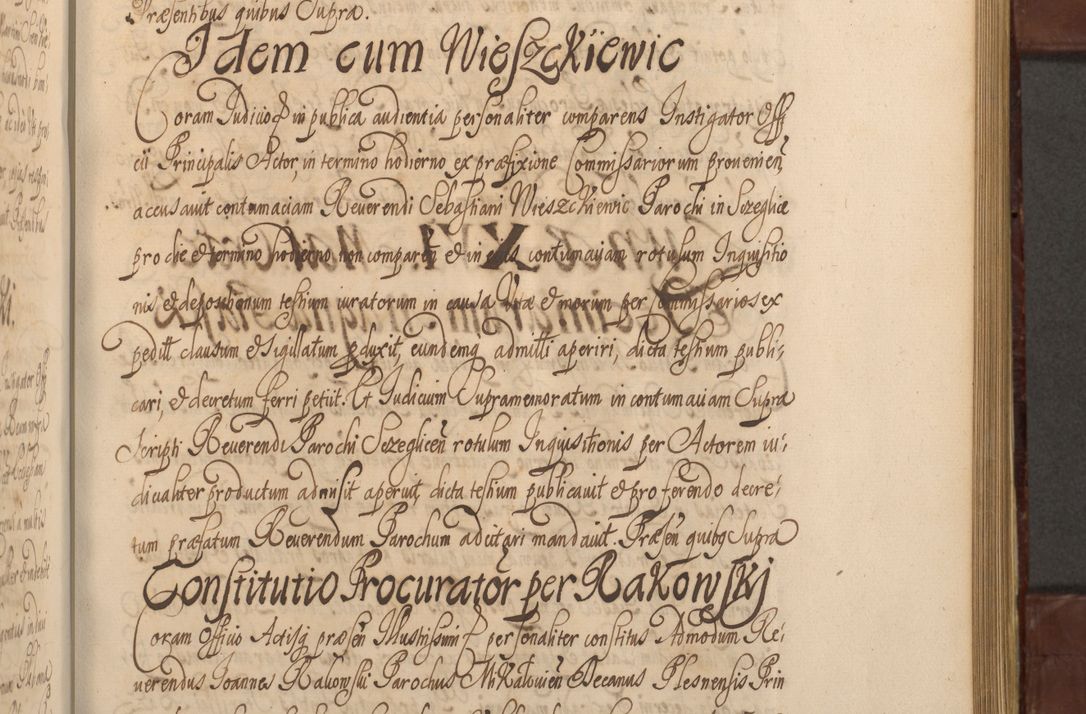 Præsentibus quibus Supra.
Idem cum Wieszckiewic
Coram Judicio & in publica audientia personaliter comparens Instigator Offi
cii Principalis Actor, in termino hodierno ex præfixione Commissariorum provenien
accusavit contumaciam Reuerendi Sebastiani Wieszckiewic Parochi in Sczeglice
pro die et termino hodierno non comparen et in eius contumaciam rotulum Inquisitio
nis et depositionum testium iuratorum in causa Vitæ et morum per Commissarios ex
pedit clausum et sigillatum pduxit, eundemq admitti aperiri, dicta testium publi-
cari, et decretum ferri petiit. Et Judicium Supramemoratum in contumaciam Supra
scripti Reuerendi Parochi Sczeglicen rotulum Inquisitionis per Actorem iu-
dicialiter productum admisit aperuit, dicta testium publicavit et pro ferendo decre-
tum præfatum Reuerendum Parochum ad citari mandavit. Præsen quibq Supra
Constitutio Procurator per Rakowskj
Coram Officio Actisq præsen Illustrissimi & personaliter constitus Admodum Re-
uerendus Joannes Rakowski Parochus Mikalouien Decanus Plesnensis Prin